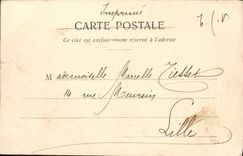 Imprimé
CARTE POSTALE
Ce côté est exclusivement réservé à l'adresse
Mademoiselle Marcelle
14 rue
Lille